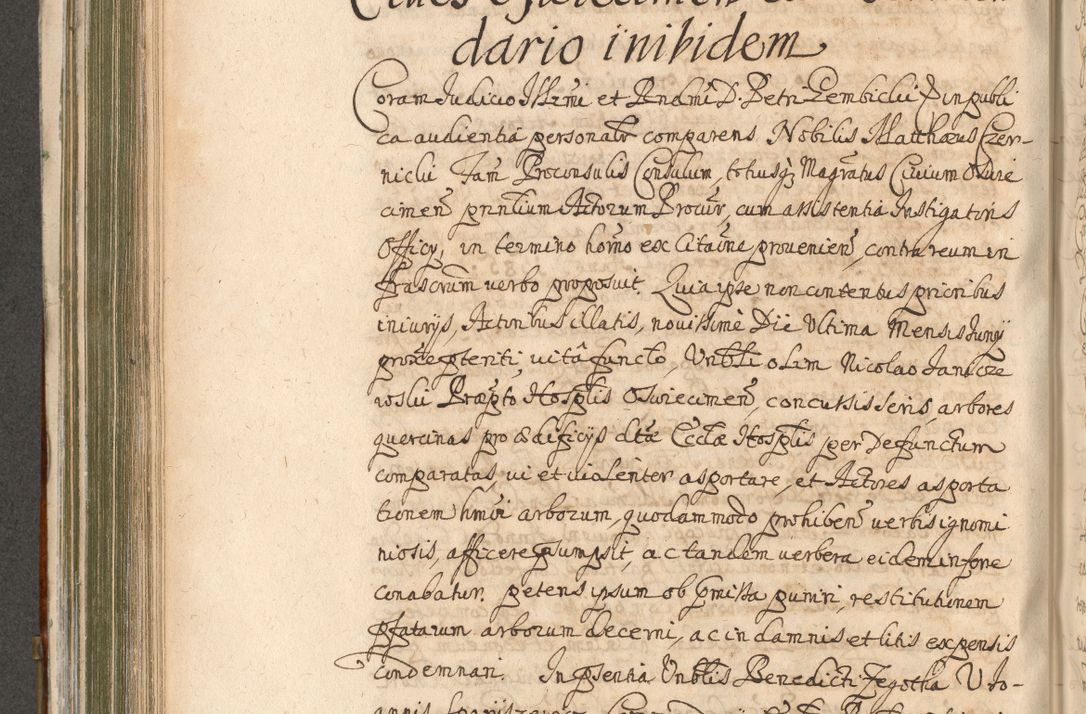 dario inibidem
Coram Judicio Illmi et Rndmi D. Petri Gembicki Ep in publi
ca audientia personalr comparens Nobilis Matthæus Czer-
nicki Fam Proconsulis Consulum, totiusq Magratus Civium Oswie
cimen pnntium Actorum Procur, cum assistentia Instigatoris
Officy, in termino horno ex Citaõne provenien, contra reum in
frascrum verbo proposuit. Quia ipse non contentus prioribus
iniurijs, Actoribus illatis, novissime Die Ultima Mensis Junij
proxe pteriti, vitâ functo, Vnbli olim Nicolao Janicze
wski Præpto Hosplis Oswiecimen, concussis seris, arbores
quercinas pro ædificijs dtæ Ecclæ Hosplis per Defunctum
comparatas, vi et violenter asportare, et Actores asporta
tionem hmoi arborum, quodammodo prohiben verbis ignomi
niosis, afficere psumpsit, ac tandem verbera eidem inferre
conabatur. petens ipsum ob pmissa puniri, restitutionem
pfatarum arborum decerni, ac in damnis et litis expensis
condemnari. In psentia Vnblis Benedicti Zegotha V Jo-